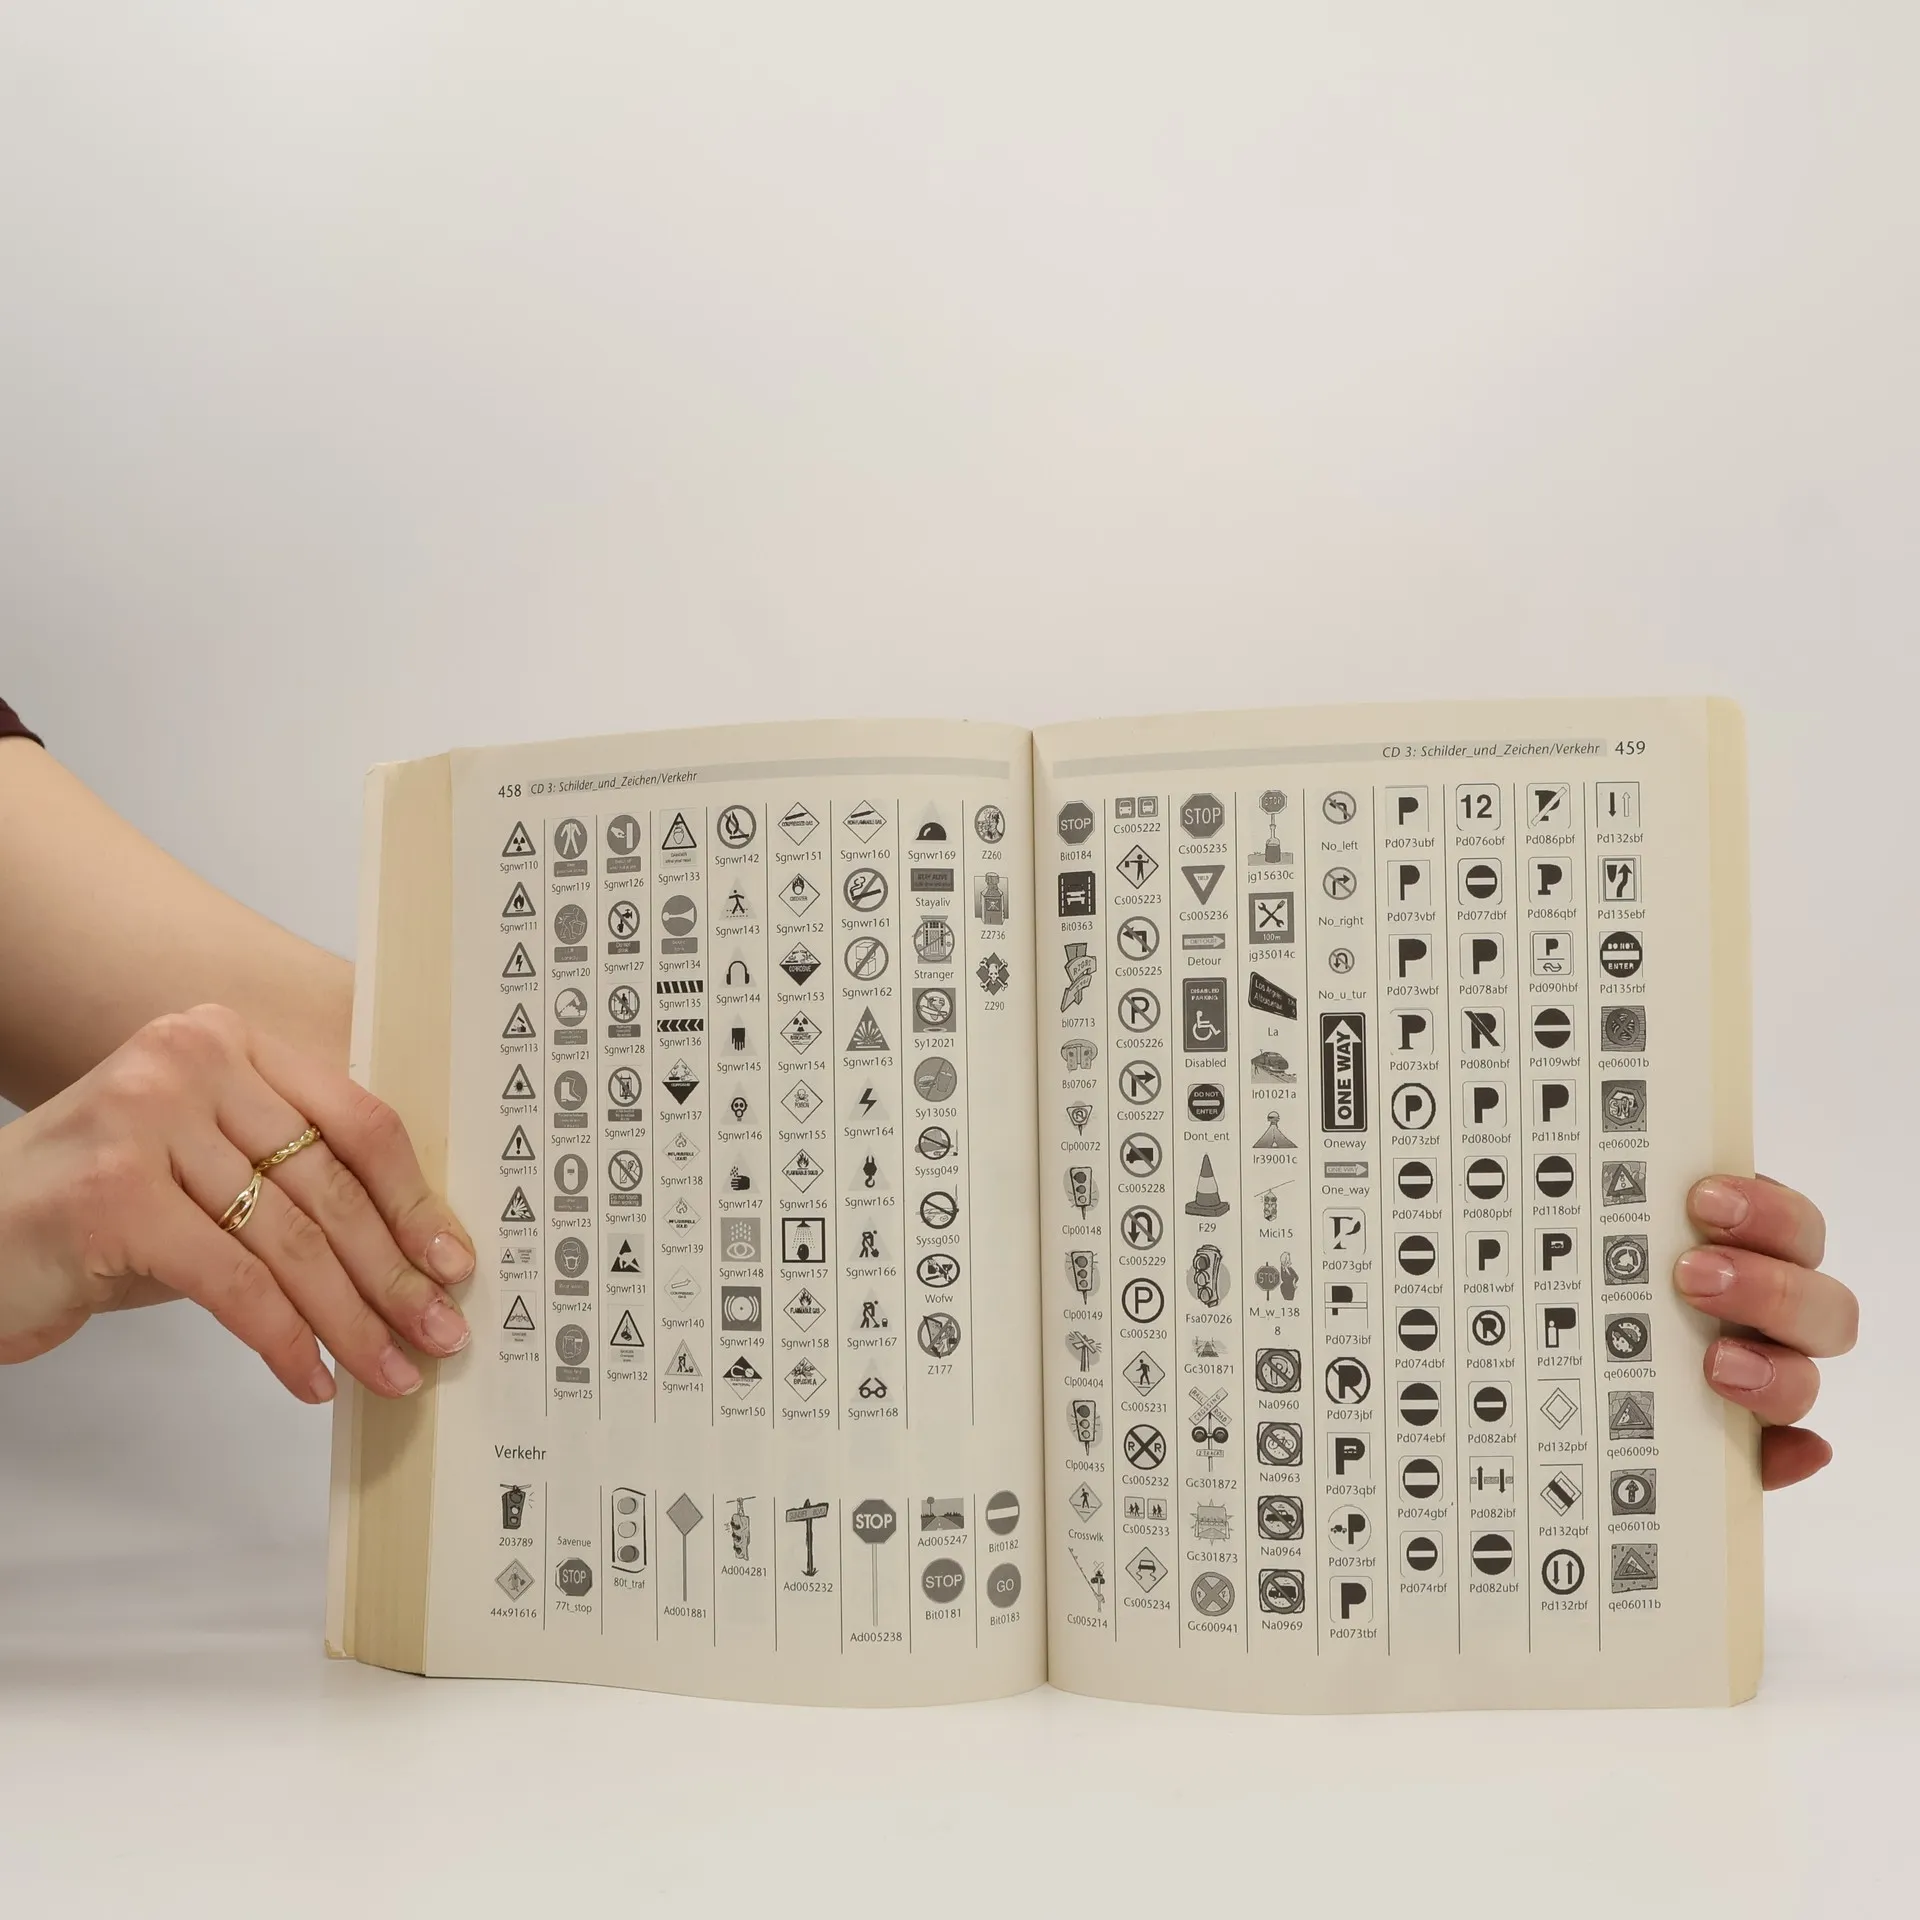 458 CD 3: Schilder_und_Zeichen/Verkehr
Sgnwr110
Sgnwr111
Sgnwr112
Sgnwr113
Sgnwr114
Sgnwr115
Sgnwr116
Sgnwr117
Sgnwr118
Sgnwr119
Sgnwr120
Sgnwr121
Sgnwr122
Sgnwr123
Sgnwr124
Sgnwr125
Sgnwr126
Do not
Sgnwr127
Sgnwr128
Sgnwr129
Sgnwr130
Sgnwr131
Sgnwr132
Sgnwr133
Sgnwr134
Sgnwr135
Sgnwr136
Sgnwr137
Sgnwr138
Sgnwr139
Sgnwr140
Sgnwr141
Sgnwr142
Sgnwr143
Sgnwr144
Sgnwr145
Sgnwr146
Sgnwr147
Sgnwr148
Sgnwr149
Sgnwr150
COMPRESSED GAS
Sgnwr151
Sgnwr152
CORROSIVE
Sgnwr153
Sgnwr154
POISON
Sgnwr155
FLAMMABLE SOLID
Sgnwr156
Sgnwr157
FLAMMABLE GAS
Sgnwr158
Sgnwr159
Sgnwr160
Sgnwr161
Sgnwr162
Sgnwr163
Sgnwr164
Sgnwr165
Sgnwr166
Sgnwr167
Sgnwr168
Sgnwr169
STAY ALIVE
Stayaliv
Stranger
Sy12021
Sy13050
Syssg049
Syssg050
Wofw
Z177
Z260
Z2736
Z290
Verkehr
203789
44x91616
5avenue
STOP
77t_stop
80t_traf
Ad001881
Ad004281
Ad005232
STOP
Ad005238
Ad005247
STOP
Bit0181
Bit0182
GO
Bit0183
CD 3: Schilder_und_Zeichen/Verkehr 459
STOP
Bit0184
Bit0363
bl07713
Bs07067
Clp00072
Clp00148
Clp00149
Clp00404
Clp00435
Crosswlk
Cs005214
Cs005222
Cs005223
Cs005225
P
Cs005226
Cs005227
Cs005228
Cs005229
P
Cs005230
Cs005231
R R
Cs005232
Cs005233
Cs005234
STOP
Cs005235
YIELD
Cs005236
DETOUR
Detour
DISABLED
PARKING
Disabled
DO NOT
ENTER
Dont_ent
F29
Fsa07026
Gc301871
RAIL ROAD
CROSSING
2 TRACKS
Gc301872
Gc301873
Gc600941
STOP
jg15630c
100m
jg35014c
Los Angeles
La
lr01021a
lr39001c
Mici15
STOP
M_w_138
8
Na0960
Na0963
Na0964
Na0969
No_left
No_right
No_u_tur
ONE WAY
Oneway
ONE WAY
One_way
P
Pd073gbf
Pd073ibf
Pd073jbf
P
Pd073qbf
P
Pd073rbf
P
Pd073tbf
P
Pd073ubf
P
Pd073vbf
P
Pd073wbf
P
Pd073xbf
P
Pd073zbf
Pd074bbf
Pd074cbf
Pd074dbf
Pd074ebf
Pd074gbf
Pd074rbf
12
Pd076obf
Pd077dbf
P
Pd078abf
Pd080nbf
P
Pd080obf
Pd080pbf
P
Pd081wbf
Pd081xbf
Pd082abf
Pd082ibf
Pd082ubf
P
Pd086pbf
P
Pd086qbf
P
Pd090hbf
Pd109wbf
P
Pd118nbf
Pd118obf
P
Pd123vbf
P
Pd127fbf
Pd132pbf
Pd132qbf
Pd132rbf
Pd132sbf
Pd135ebf
DO NOT
ENTER
Pd135rbf
qe06001b
qe06002b
qe06004b
qe06006b
qe06007b
qe06009b
qe06010b
qe06011b